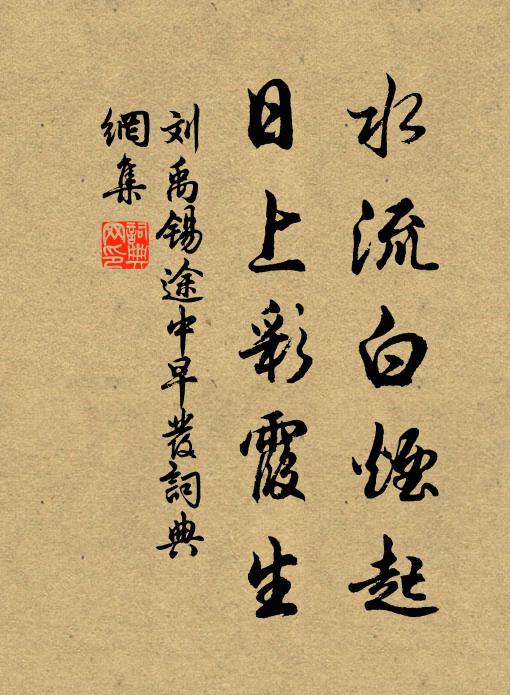 水流白煙起
日上彩霞生
刘禹锡途中早發詞典
網集
詞典
网印